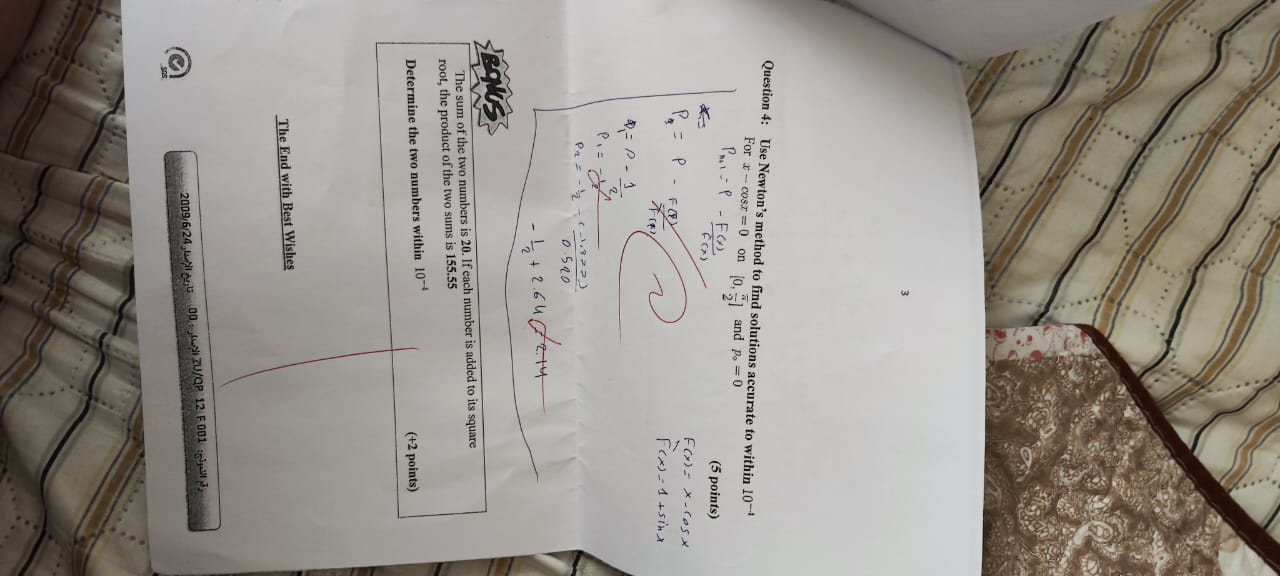 3
Question 4: Use Newton's method to find solutions accurate to within 10⁻⁴
For x − cosx = 0 on [0, π/2] and p₀ = 0
(5 points)
F(x) = x - cosx
F'(x) = 1 + sinx
= P - F(x)/F'(x)
= P - F(P)/F'(P)
2
P₁ = - 1/2
P₂ = - 1/2 - (-1.3777)/0.520
- 1/2 + 2.64 = 2.14
BONUS
The sum of the two numbers is 20. If each number is added to its square
root, the product of the two sums is 155.55
Determine the two numbers within 10⁻⁴ (+2 points)
The End with Best Wishes
SGS
رقم النموذج: ZU/QP 12 F 001 الإصدار: 00 تاريخ الإصدار 2009/6/24